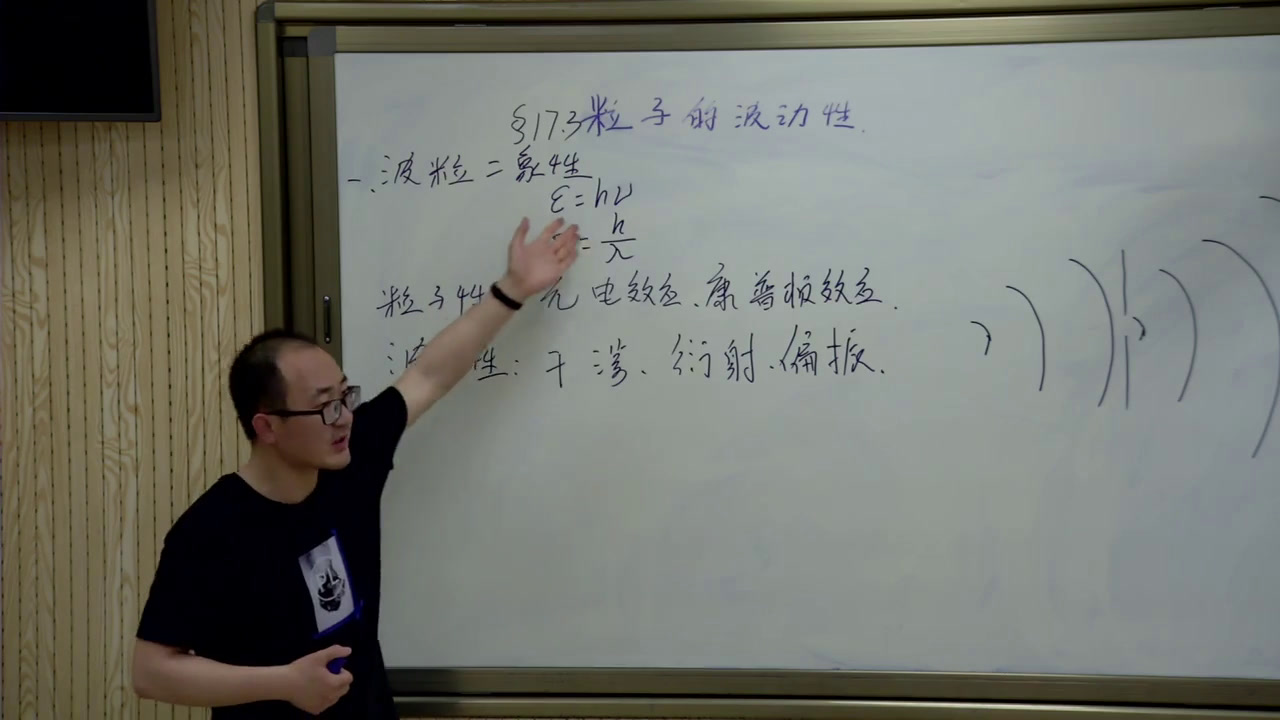 §17.3粒子的波动性.
一、波粒二象性
ε=hν
=h/λ
粒子性 光电效应、康普顿效应.
波 性:干涉、衍射、偏振.